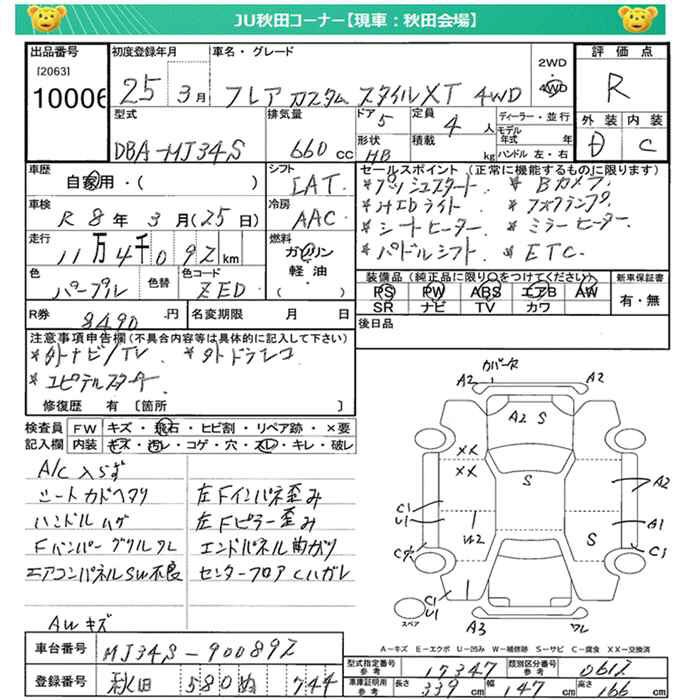 JU秋田コーナー【現車：秋田会場】
出品番号
[2063]
10006
初度登録年月
25年 3月
車名・グレード
フレア カスタム スタイルXT 4WD
2WD
4WD
評価点
R
外装 内装
D C
型式
DBA-MJ34S
排気量
660 cc
ドア
5
定員
4人
ディーラー・並行
モデル
年式 年
ハンドル 左・右
形状
HB
積載
kg
車歴
自家用・( )
シフト
IAT
車検
R 8年 3月(25日)
冷房
AAC
セールスポイント (正常に機能するものに限ります)
*プッシュスタート *Bカメラ
*HIDライト *フォグランプ
*シートヒーター *ミラーヒーター
*パドルシフト *ETC
走行
11万4千092 km
燃料
ガソリン
軽油
( )
色
パープル
色替
色コード
ZED
装備品 (純正品に限り○をつけてください)
PS PW ABS エアB AW
SR ナビ TV カワ
新車保証書
有・無
R券
8490 円
名変期限 月 日
後日品
注意事項申告欄(不具合内容等は具体的に記入して下さい)
*外ナビ/TV *外ドラレコ
*ユピテルスターター
修復歴 有 [箇所 ]
検査員 FW キズ・飛石・ヒビ割・リペア跡・×要
記入欄 内装 キズ・汚レ・コゲ・穴・スレ・キレ・破レ
A/C 入らず
シートカドヘタリ 左Fインパネ歪み
ハンドルハゲ 左Fピラー歪み
Fバンパーグリルワレ エンドパネル曲ガリ
エアコンパネルSW不良 センターフロアCハガレ
AWキズ
カバー欠
A2 A2
A2 S
XX
XX
S
A2
C1
U1
U2
A1
S
C1
C1
U1
A3
ワレ
スペア
A－キズ E－エクボ U－凹み W－補修跡 S－サビ C－腐食 XX－交換済
車台番号
MJ34S-900892
登録番号
秋田 580 ぬ 744
型式指定番号
参考
17347
類別区分番号
参考
0612
車庫証明用
参考
長さ 339cm 幅 147cm 高さ 166cm